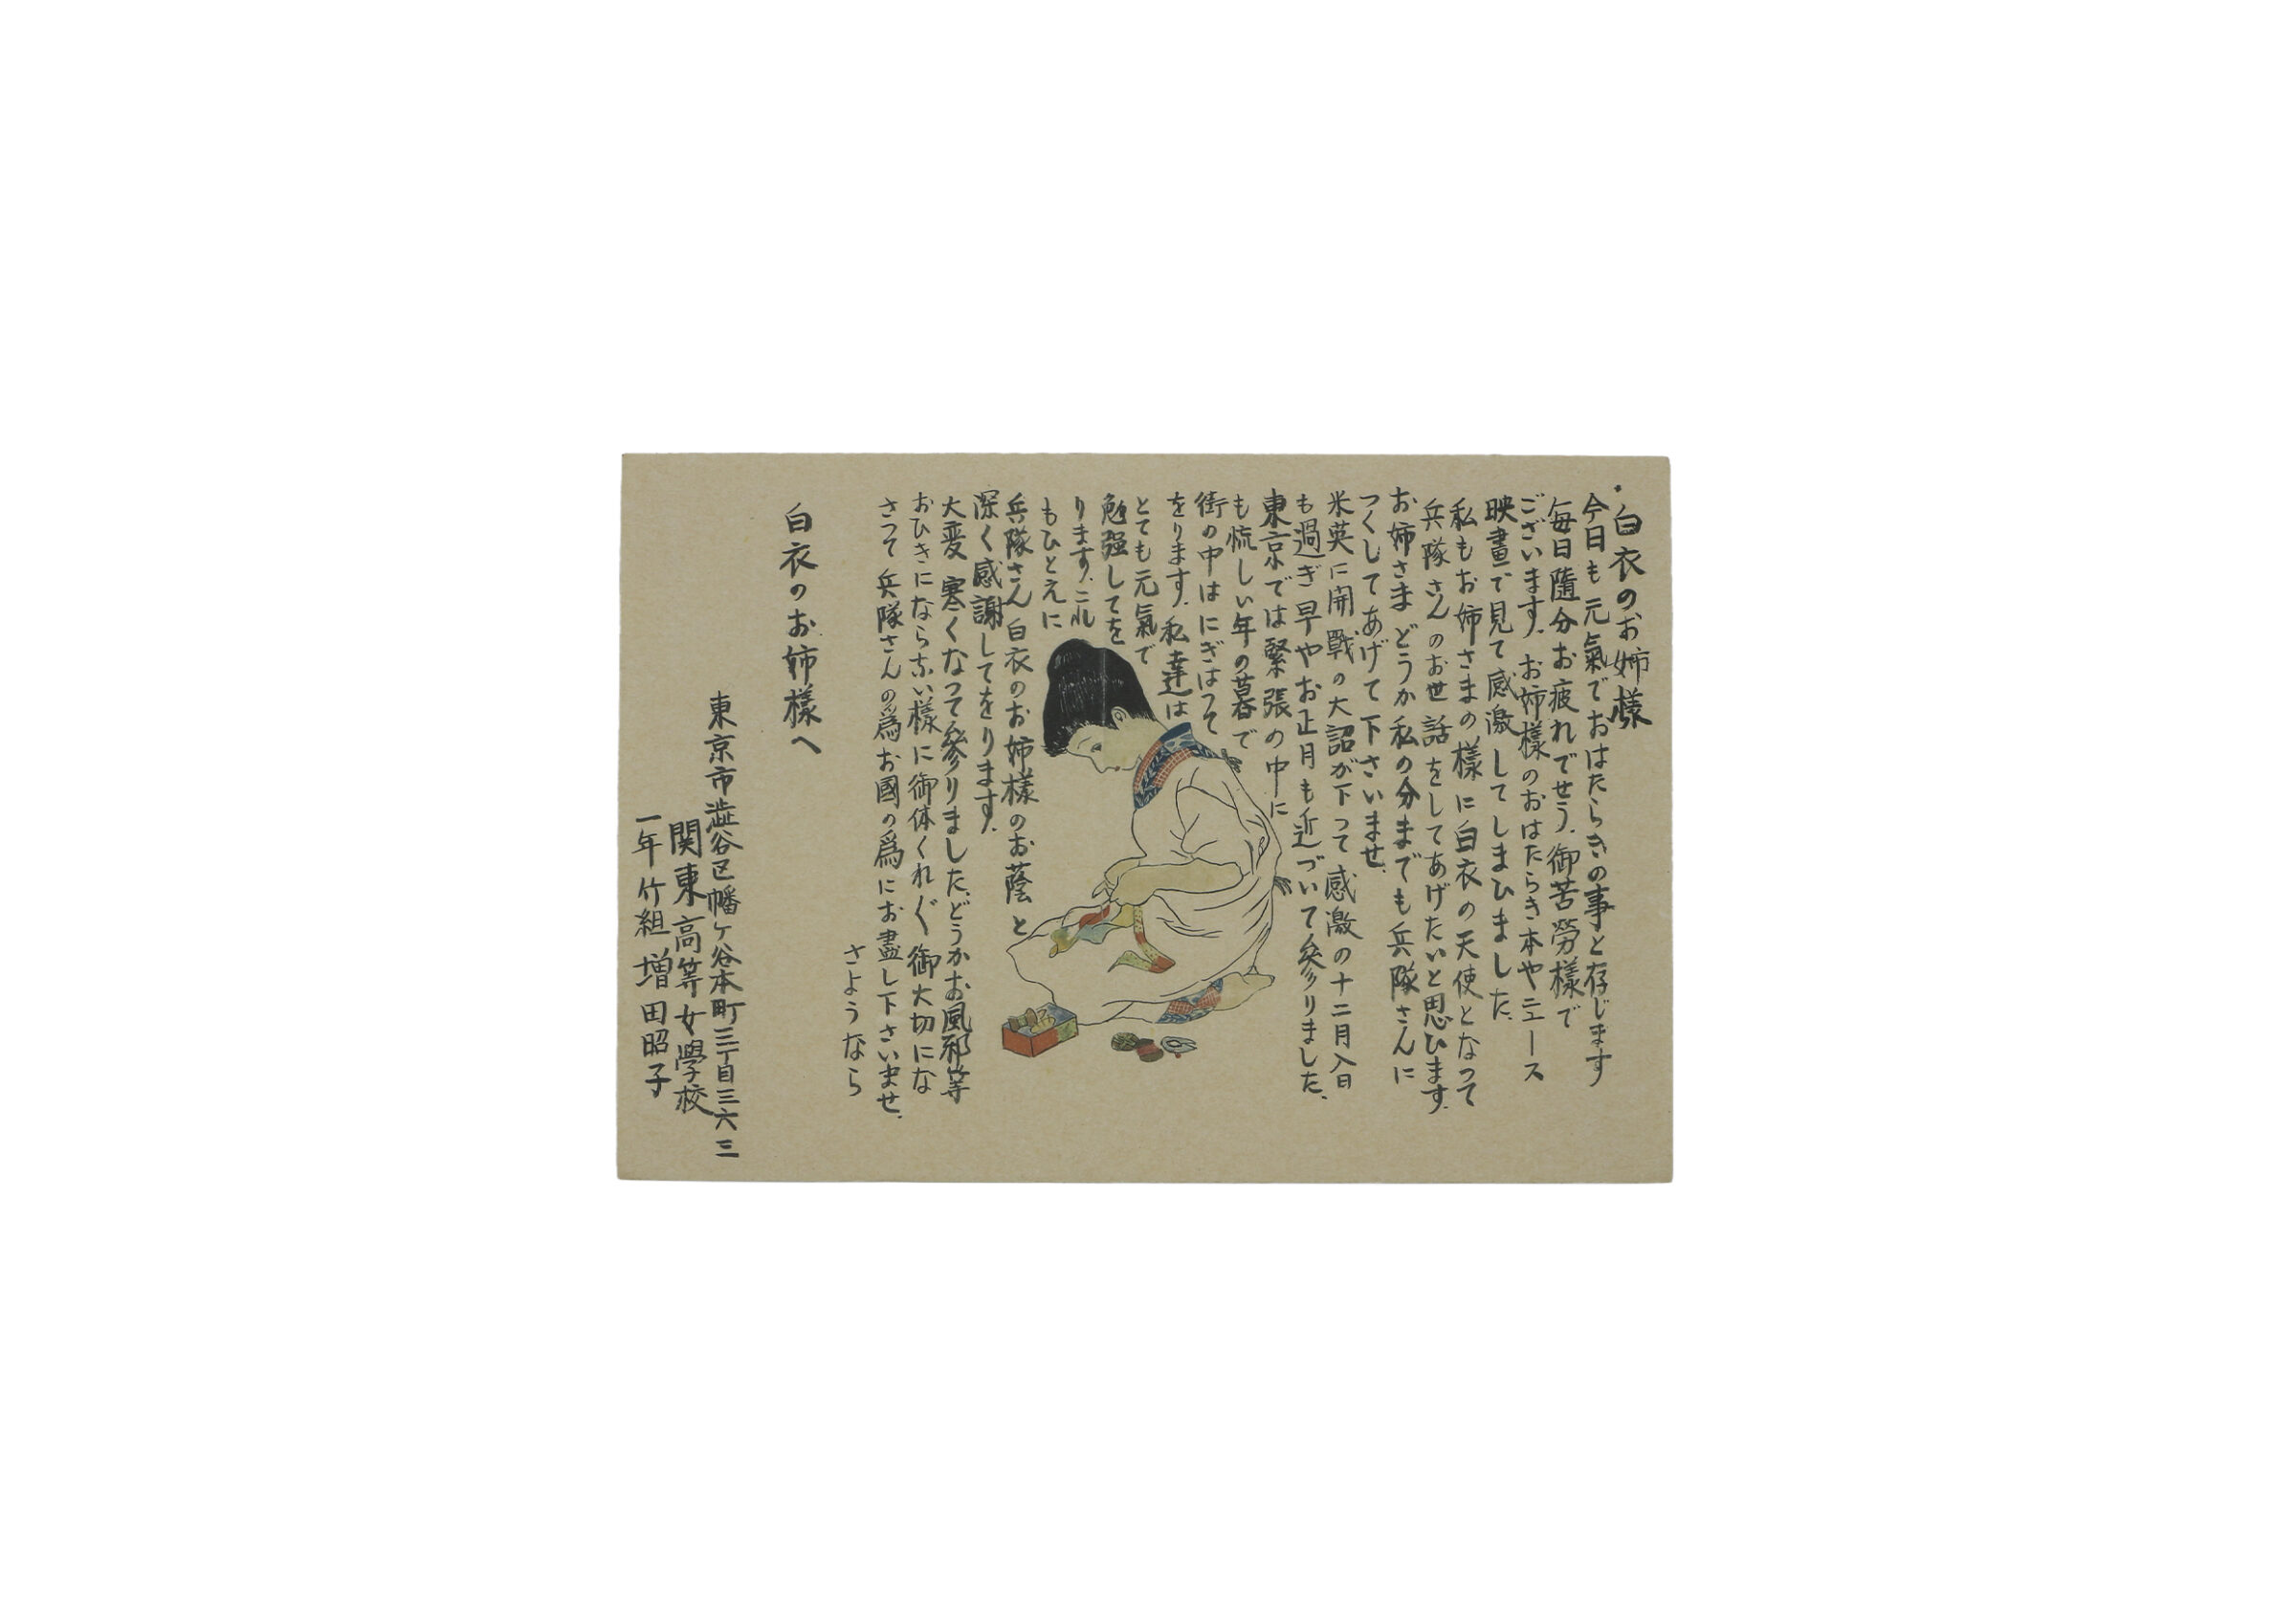 白衣のお姉様
今日も元氣でおはたらきの事と存じます
毎日隨分お疲れでせう、御苦勞樣で
ございます。お姉様のおはたらき本やニュース
映畫で見て感激してしまひました。
私もお姉さまの樣に白衣の天使となつて
兵隊さんのお世話をしてあげたいと思ひます。
お姉さまどうか私の分までも兵隊さんに
つくしてあげて下さいませ。
米英に開戰の大詔が下つて感激の十二月八日
も過ぎ早やお正月も近づいて參りました。
東京では緊張の中に
も慌しい年の暮で
街の中はにぎはつて
をります。私達は
とても元氣で
勉强してを
ります。これ
もひとえに
兵隊さん白衣のお姉樣のお蔭と
深く感謝してをります。
大変寒くなつて參りました。どうかお風邪等
おひきにならない様に御体くれぐ御大切にな
さつて兵隊さんの爲お國の爲にお盡し下さいませ。
さようなら
白衣のお姉様へ
東京市澁谷区幡ヶ谷本町三丁目三六三
関東高等女學校
一年竹組 増田昭子